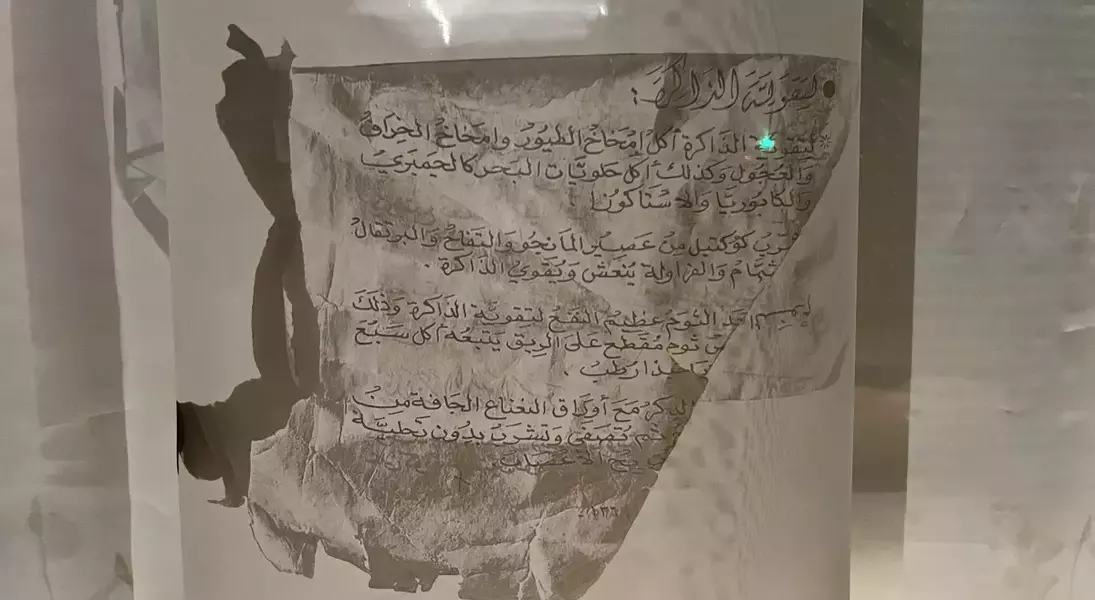 لتقوية الذاكرة:
* لتقوية الذاكرة أكل امخاخ الطيور وامخاخ الخراف
والعجول وكذلك أكل حلويات البحر كالجمبري
والكابوريا والاستاكوزا
كوكتيل من عصير المانجو والتفاح والبرتقال
والفراولة ينعش ويقوي الذاكرة.
الثوم عظيم النفع لتقوية الذاكرة وذلك
ثوم مقطع على الريق يتبعه أكل سبع
رطب.
مع أوراق النعناع الجافة من
ثم تصفى وتشرب بدون تحلية